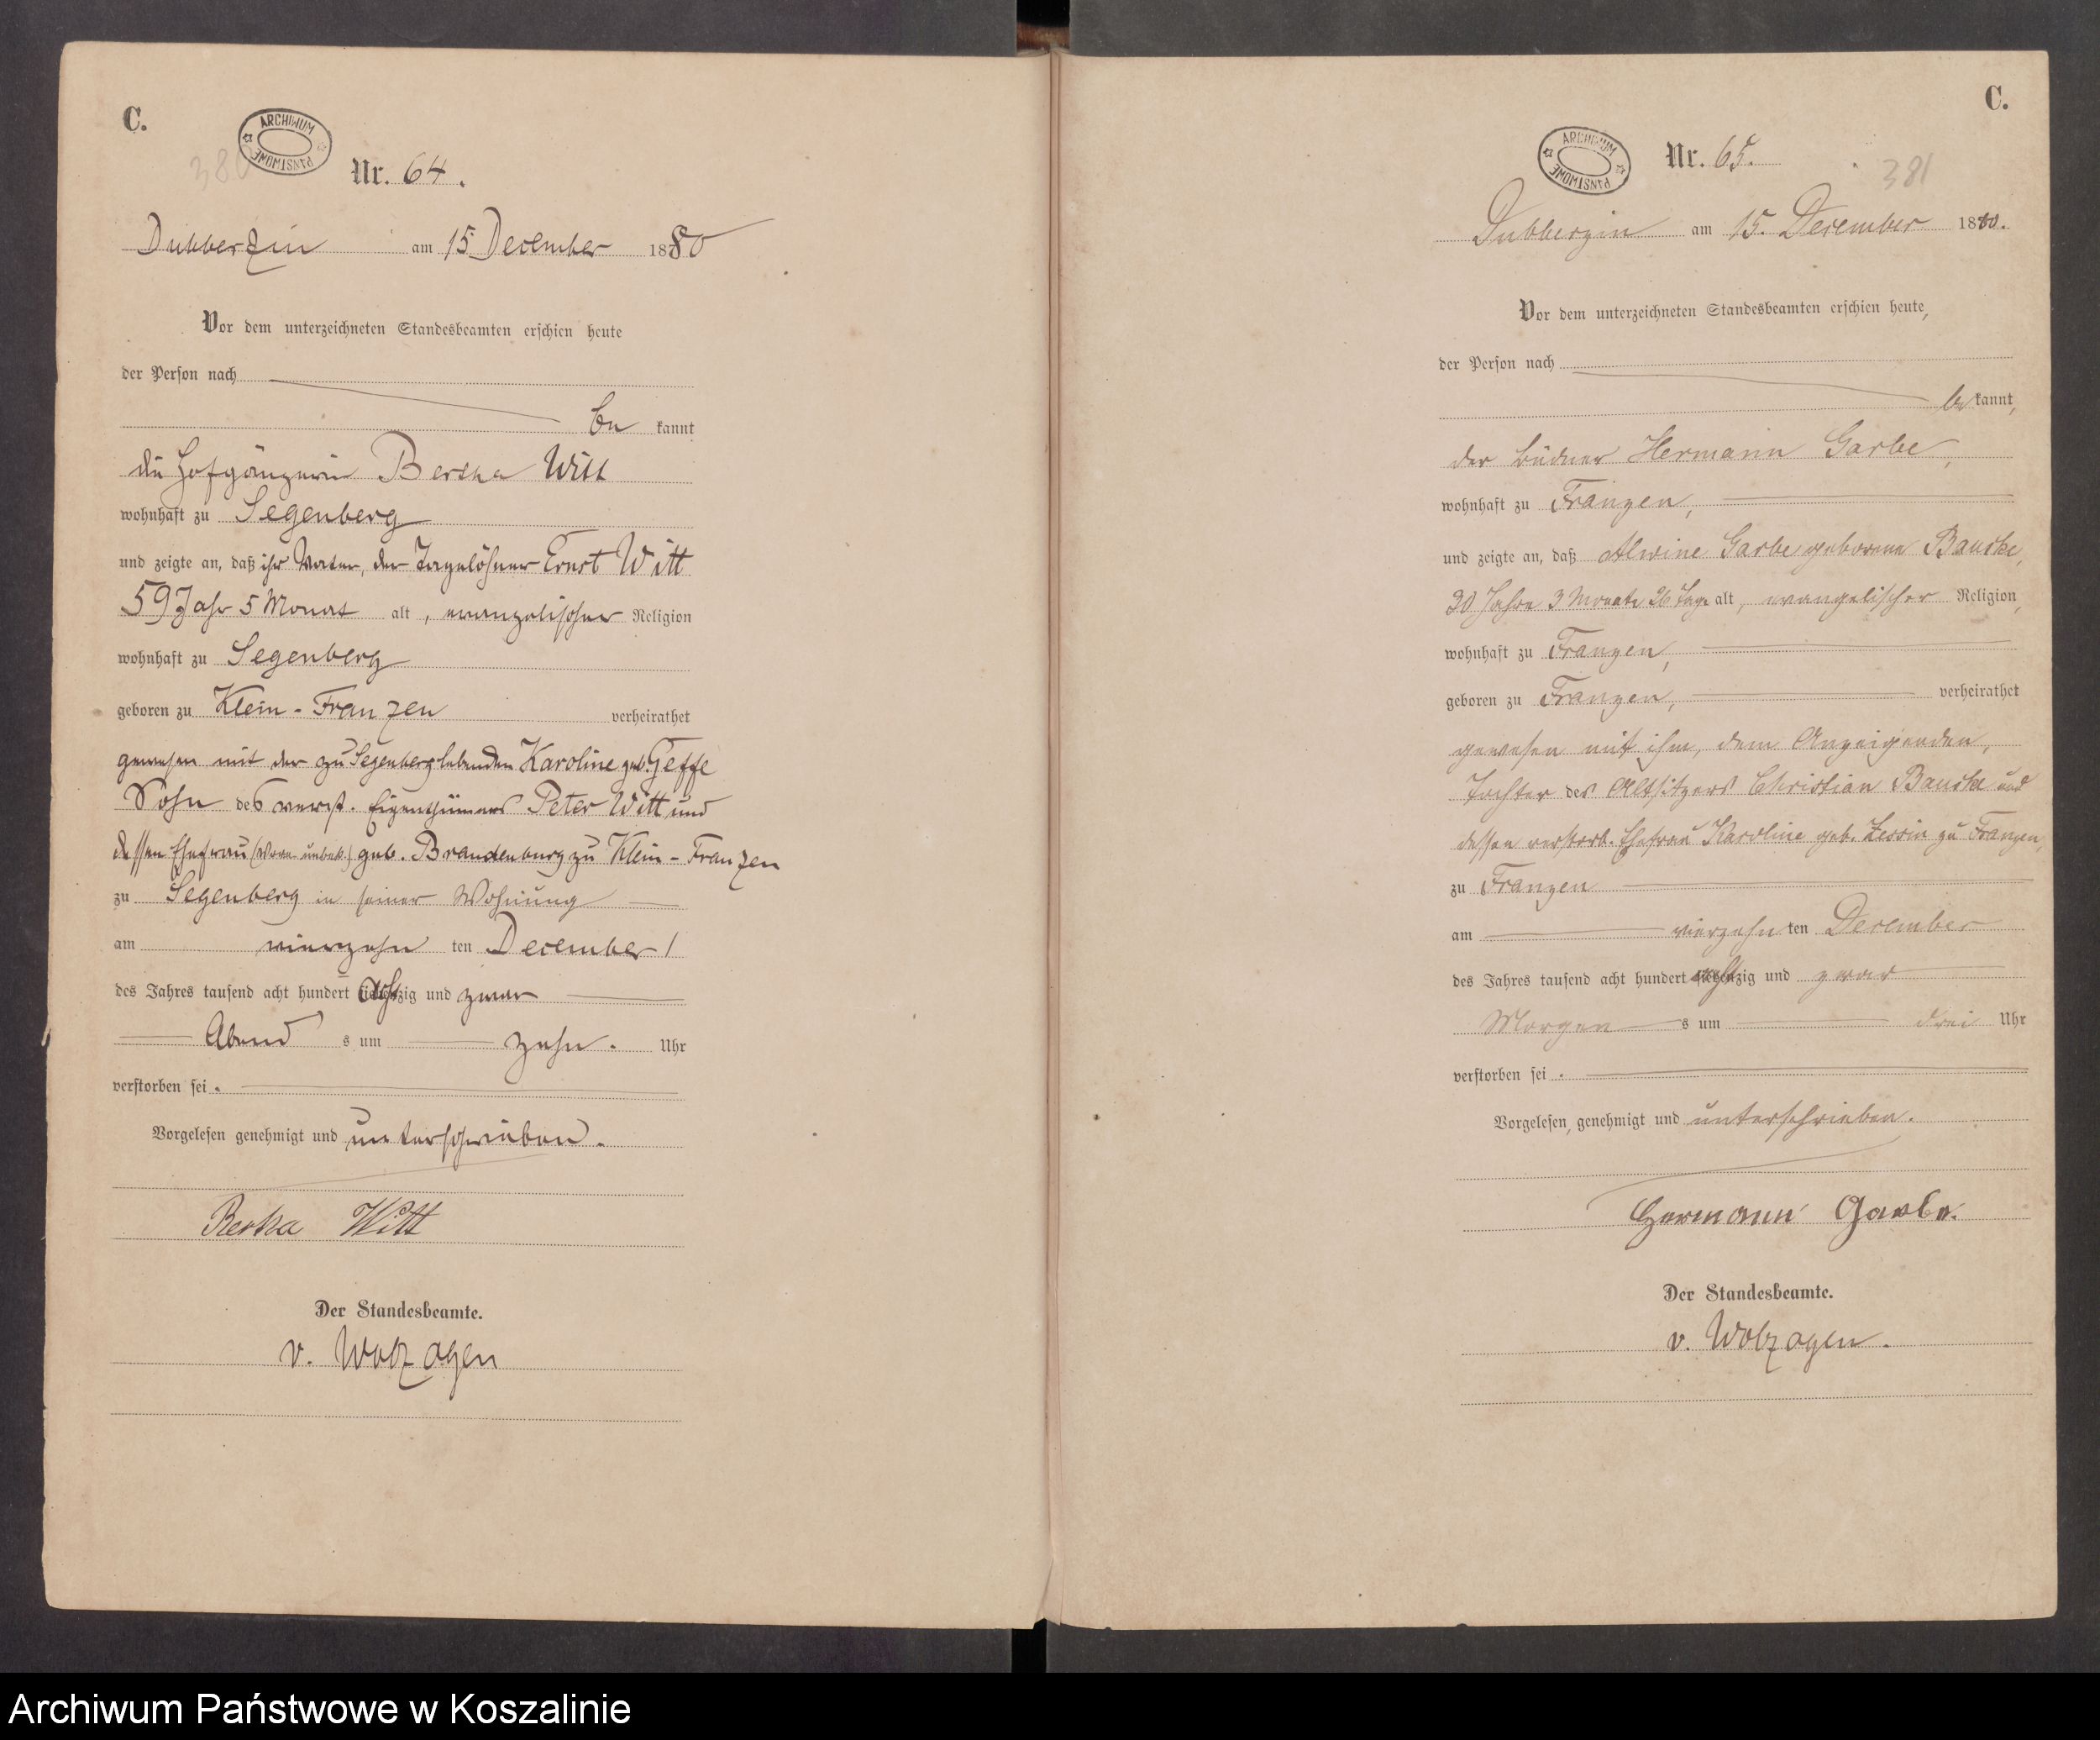 C.
ARCHIWUM PAŃSTWOWE
380
Nr. 64.
Dubberzin am 15. December 1880
Vor dem unterzeichneten Standesbeamten erschien heute
der Person nach
be kannt
die Hofgängerin Bertha Witt
wohnhaft zu Segenberg
und zeigte an, daß ihr Vater, der Tagelöhner Ernst Witt
59 Jahr 5 Monat alt, evangelischer Religion
wohnhaft zu Segenberg
geboren zu Klein-Franzen verheirathet
gewesen mit der zu Segenberg lebenden Karoline geb. Geffe
Sohn des verst. Eigenthümers Peter Witt und
dessen Ehefrau (Vorn. unbek.) geb. Brandenburg zu Klein-Franzen
zu Segenberg in seiner Wohnung
am vierzehn ten December
des Jahres tausend acht hundert achtzig und zwar
Abend s um zehn. Uhr
verstorben sei.
Vorgelesen genehmigt und unterschrieben.
Bertha Witt
Der Standesbeamte.
v. Wolzogen
C.
ARCHIWUM PAŃSTWOWE
Nr. 65.
381
Dubberzin am 15. December 1880.
Vor dem unterzeichneten Standesbeamten erschien heute,
der Person nach
be kannt,
der Büdner Hermann Garbe,
wohnhaft zu Franzen,
und zeigte an, daß Alwine Garbe geborene Bauske,
30 Jahre 3 Monate 26 Tage alt, evangelischer Religion,
wohnhaft zu Franzen,
geboren zu Franzen, verheirathet
gewesen mit ihm, dem Anzeigenden,
Tochter des Altsitzers Christian Bauske und
dessen verstorb. Ehefrau Karoline geb. Zessin zu Franzen,
zu Franzen
am vierzehn ten December
des Jahres tausend acht hundert achtzig und zwar
Morgen s um drei Uhr
verstorben sei.
Vorgelesen, genehmigt und unterschrieben.
Hermann Garbe.
Der Standesbeamte.
v. Wolzogen.
Archiwum Państwowe w Koszalinie